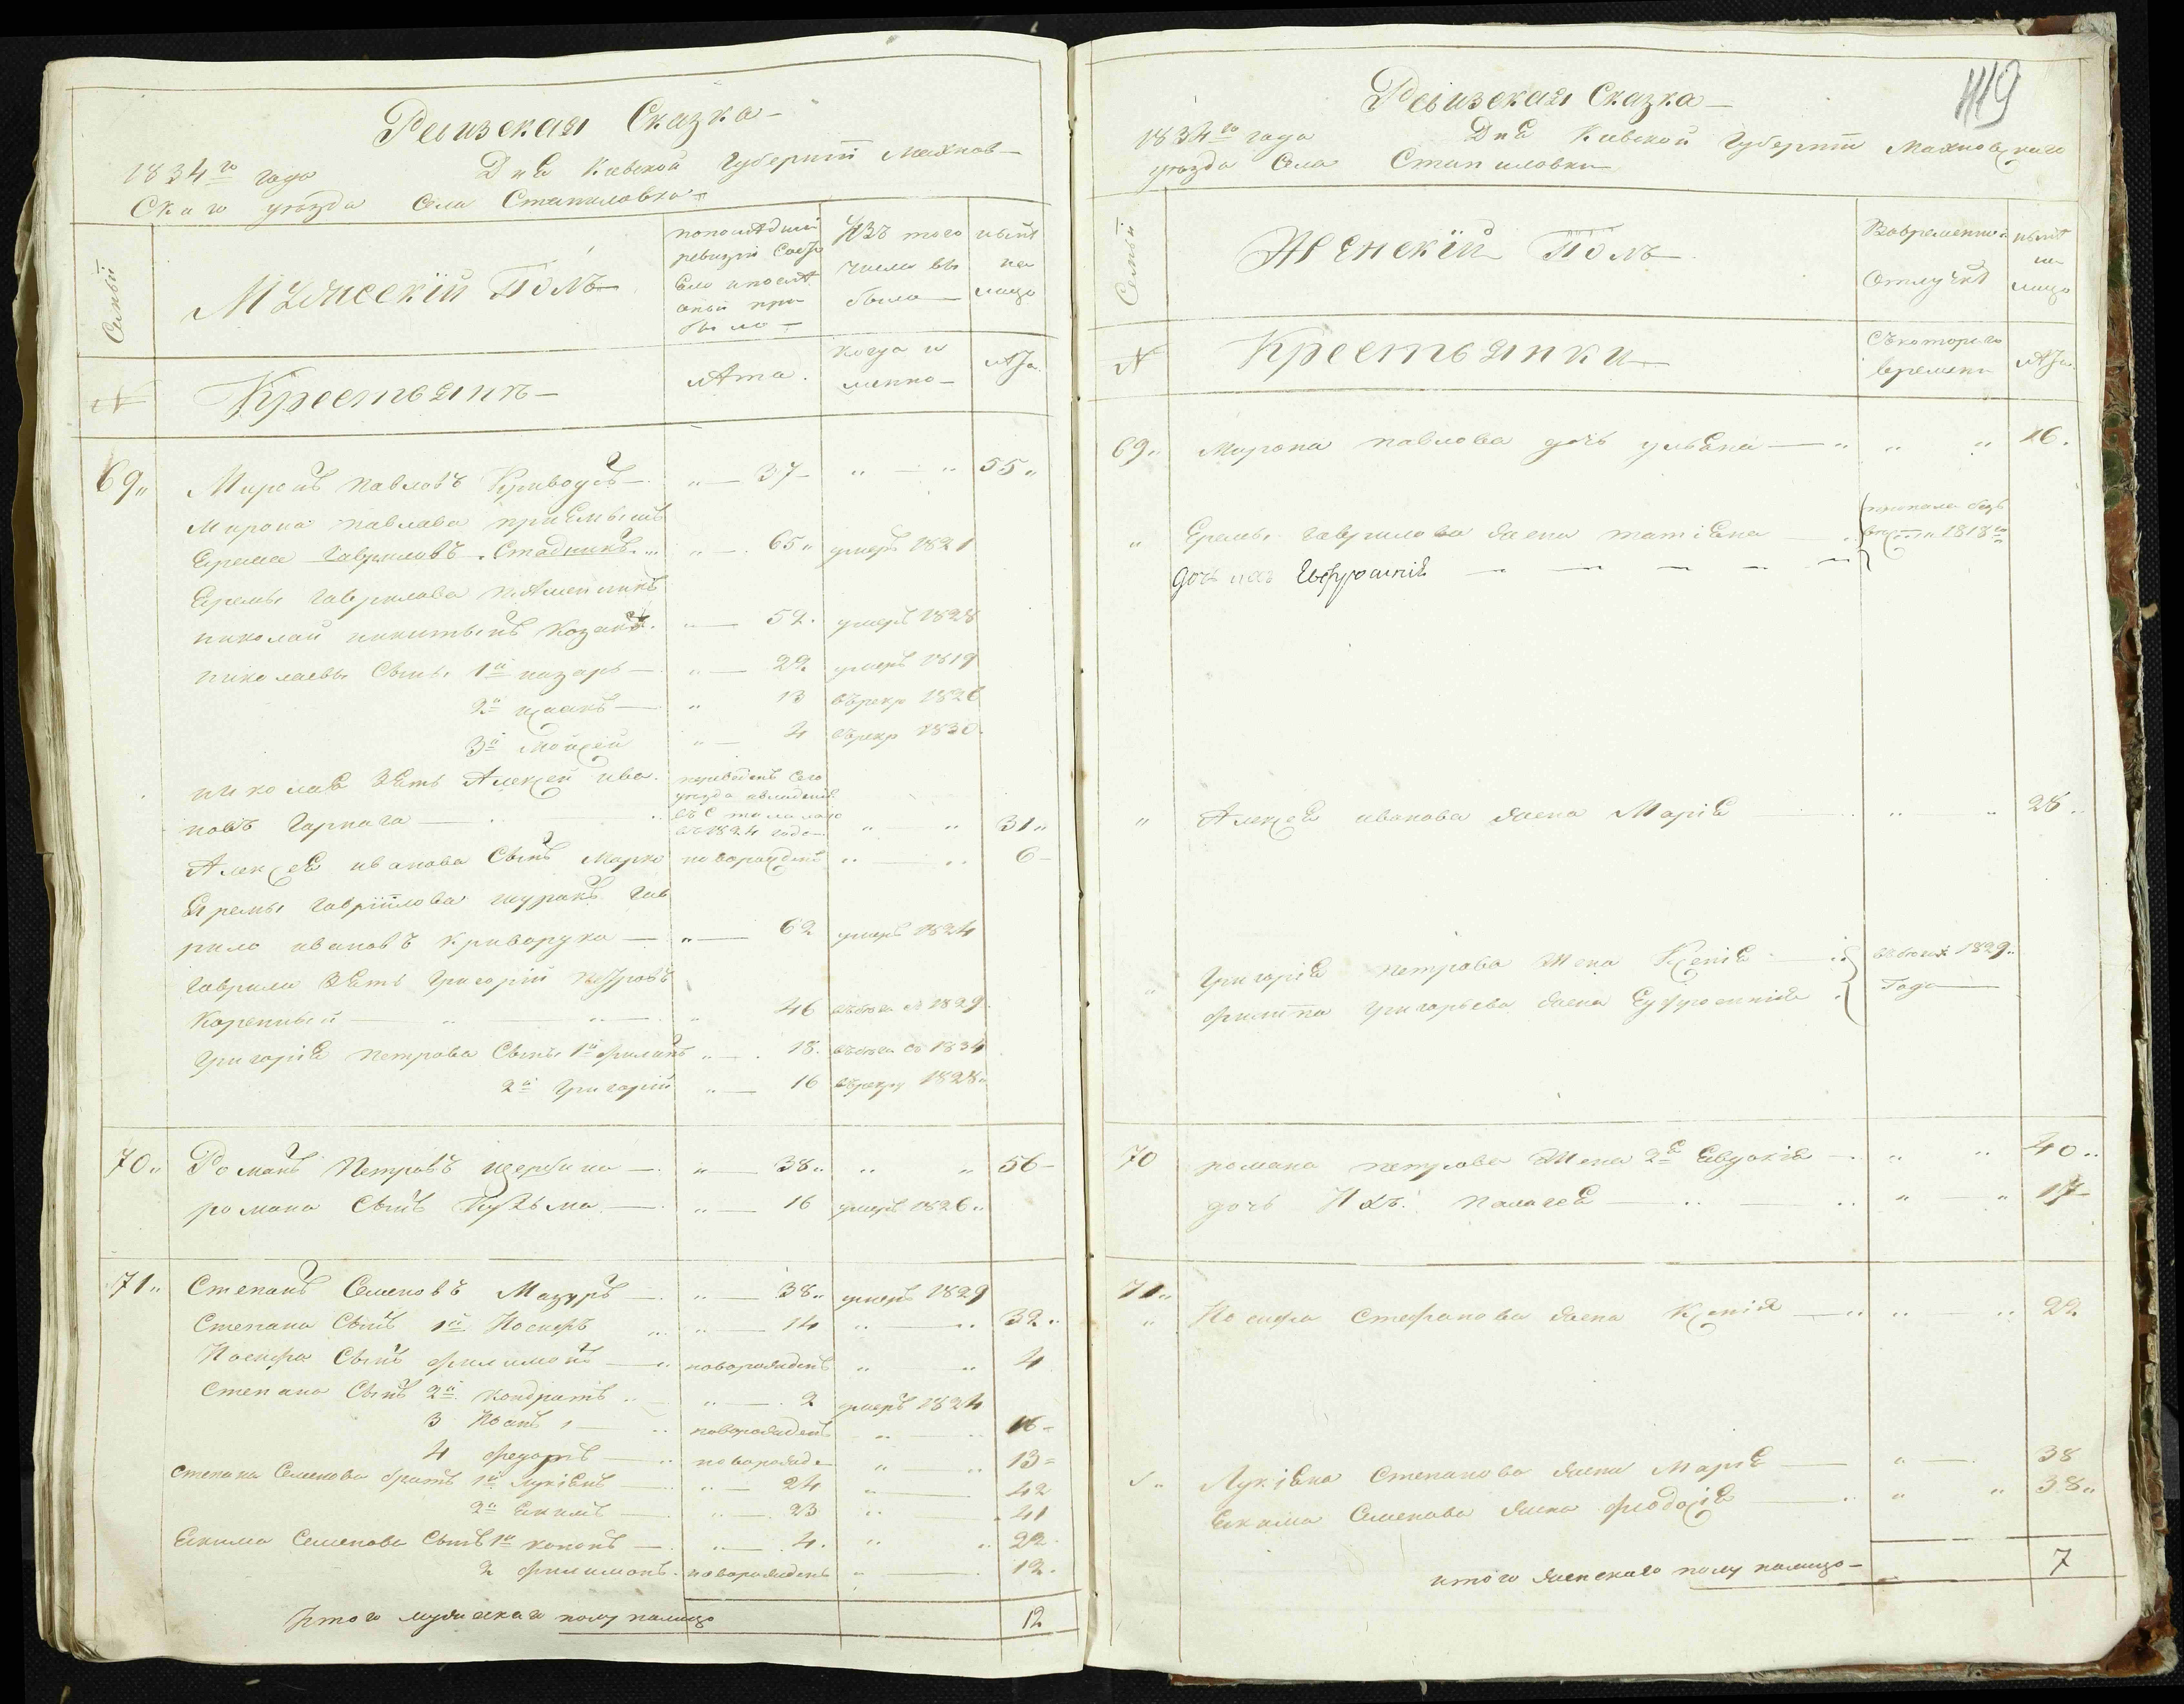 Ревизская Сказка
1834го года Дня Киевской Губернiи Махнов-
Скаго уезда Села Станиловки
Семьи
Мужескiй Полъ
по последней ревизiи Состояло и после оной прибыло
Изъ того числа выбыло
ныне на лицо
№
Крестьянъ
Лета.
когда именно
Лета
69 Миронъ Павловъ Криводъ 37 55
Мирона Павлова прiемышъ
Ерема Гавриловъ Стадникъ 65 умеръ 1821
Еремы Гаврилова племенникъ
николай никитынъ Козакъ. 52. умеръ 1828
николаевы Сыны 1й назаръ 22 умеръ 1819
2й исаакъ 13 въ рекр 1826
3й Мойсей 4 въ рекр 1830
николая Зять Алексей ива-
новъ Гарнага въ 1824 годе 31
Алексея иванова Сынъ Марко новорожденъ 6
Еремы Гаврiилова шуракъ Гав
рило ивановъ криворука 62 умеръ 1824
Гаврила Зять Григорiй Петровъ
Коренный 46 въ бегах с 1829
Григорiя Петрова Сыны 1й филипъ 18. въ бегах съ 1834
2й Григорiй 16 въ рекру 1828
70 Романъ Петровъ щербина 38 56
романа Сынъ Кузьма 16 умеръ 1826
71 Степанъ Семеновъ Мазуръ 38 умеръ 1829
Степана Сынъ 1й Иосифъ 14 32
Иосифа Сынъ филимонъ новорожденъ 4
Степана Сынъ 2й кондратъ 2 умеръ 1824
3 Иванъ новорожденъ 16
4 федоръ новорожде 13
Степана Семенова братъ 1й Лукiянъ 24 42
2й Екимъ 23 41
Екима Семенова Сынъ 1й кононъ 4. 22
2 филимонъ новорожденъ 12.
Итого мужескаго полу налицо 12
119
Ревизская Сказка
1834го года Дня Киевской Губернiи Махновскаго
уезда Села Станиловки
Семьи
Женскiй Полъ
Во временной Отлучке
ныне на лицо
№
Крестьянки
Съ котораго времени
Лета
69 Мирона павлова дочь ульяна 16.
Еремы Гаврилова жена татiяна 1818го
Дочь ихъ Евфросинiя
Алексея иванова жена Марiя 28
Григорiя петрова Жена Ксенiя въ бегах 1829
филипа григорьева жена Еуфросинiя Года
70 романа петрова Жена 2я Евдокiя 40
дочь Ихъ Палагея 17
71 Иосифа Стефанова жена Ксенiя 22
Лукiяна Степанова жена Марiя 38
Екима Семенова жена феодосiя 38
итого женскаго полу налицо 7